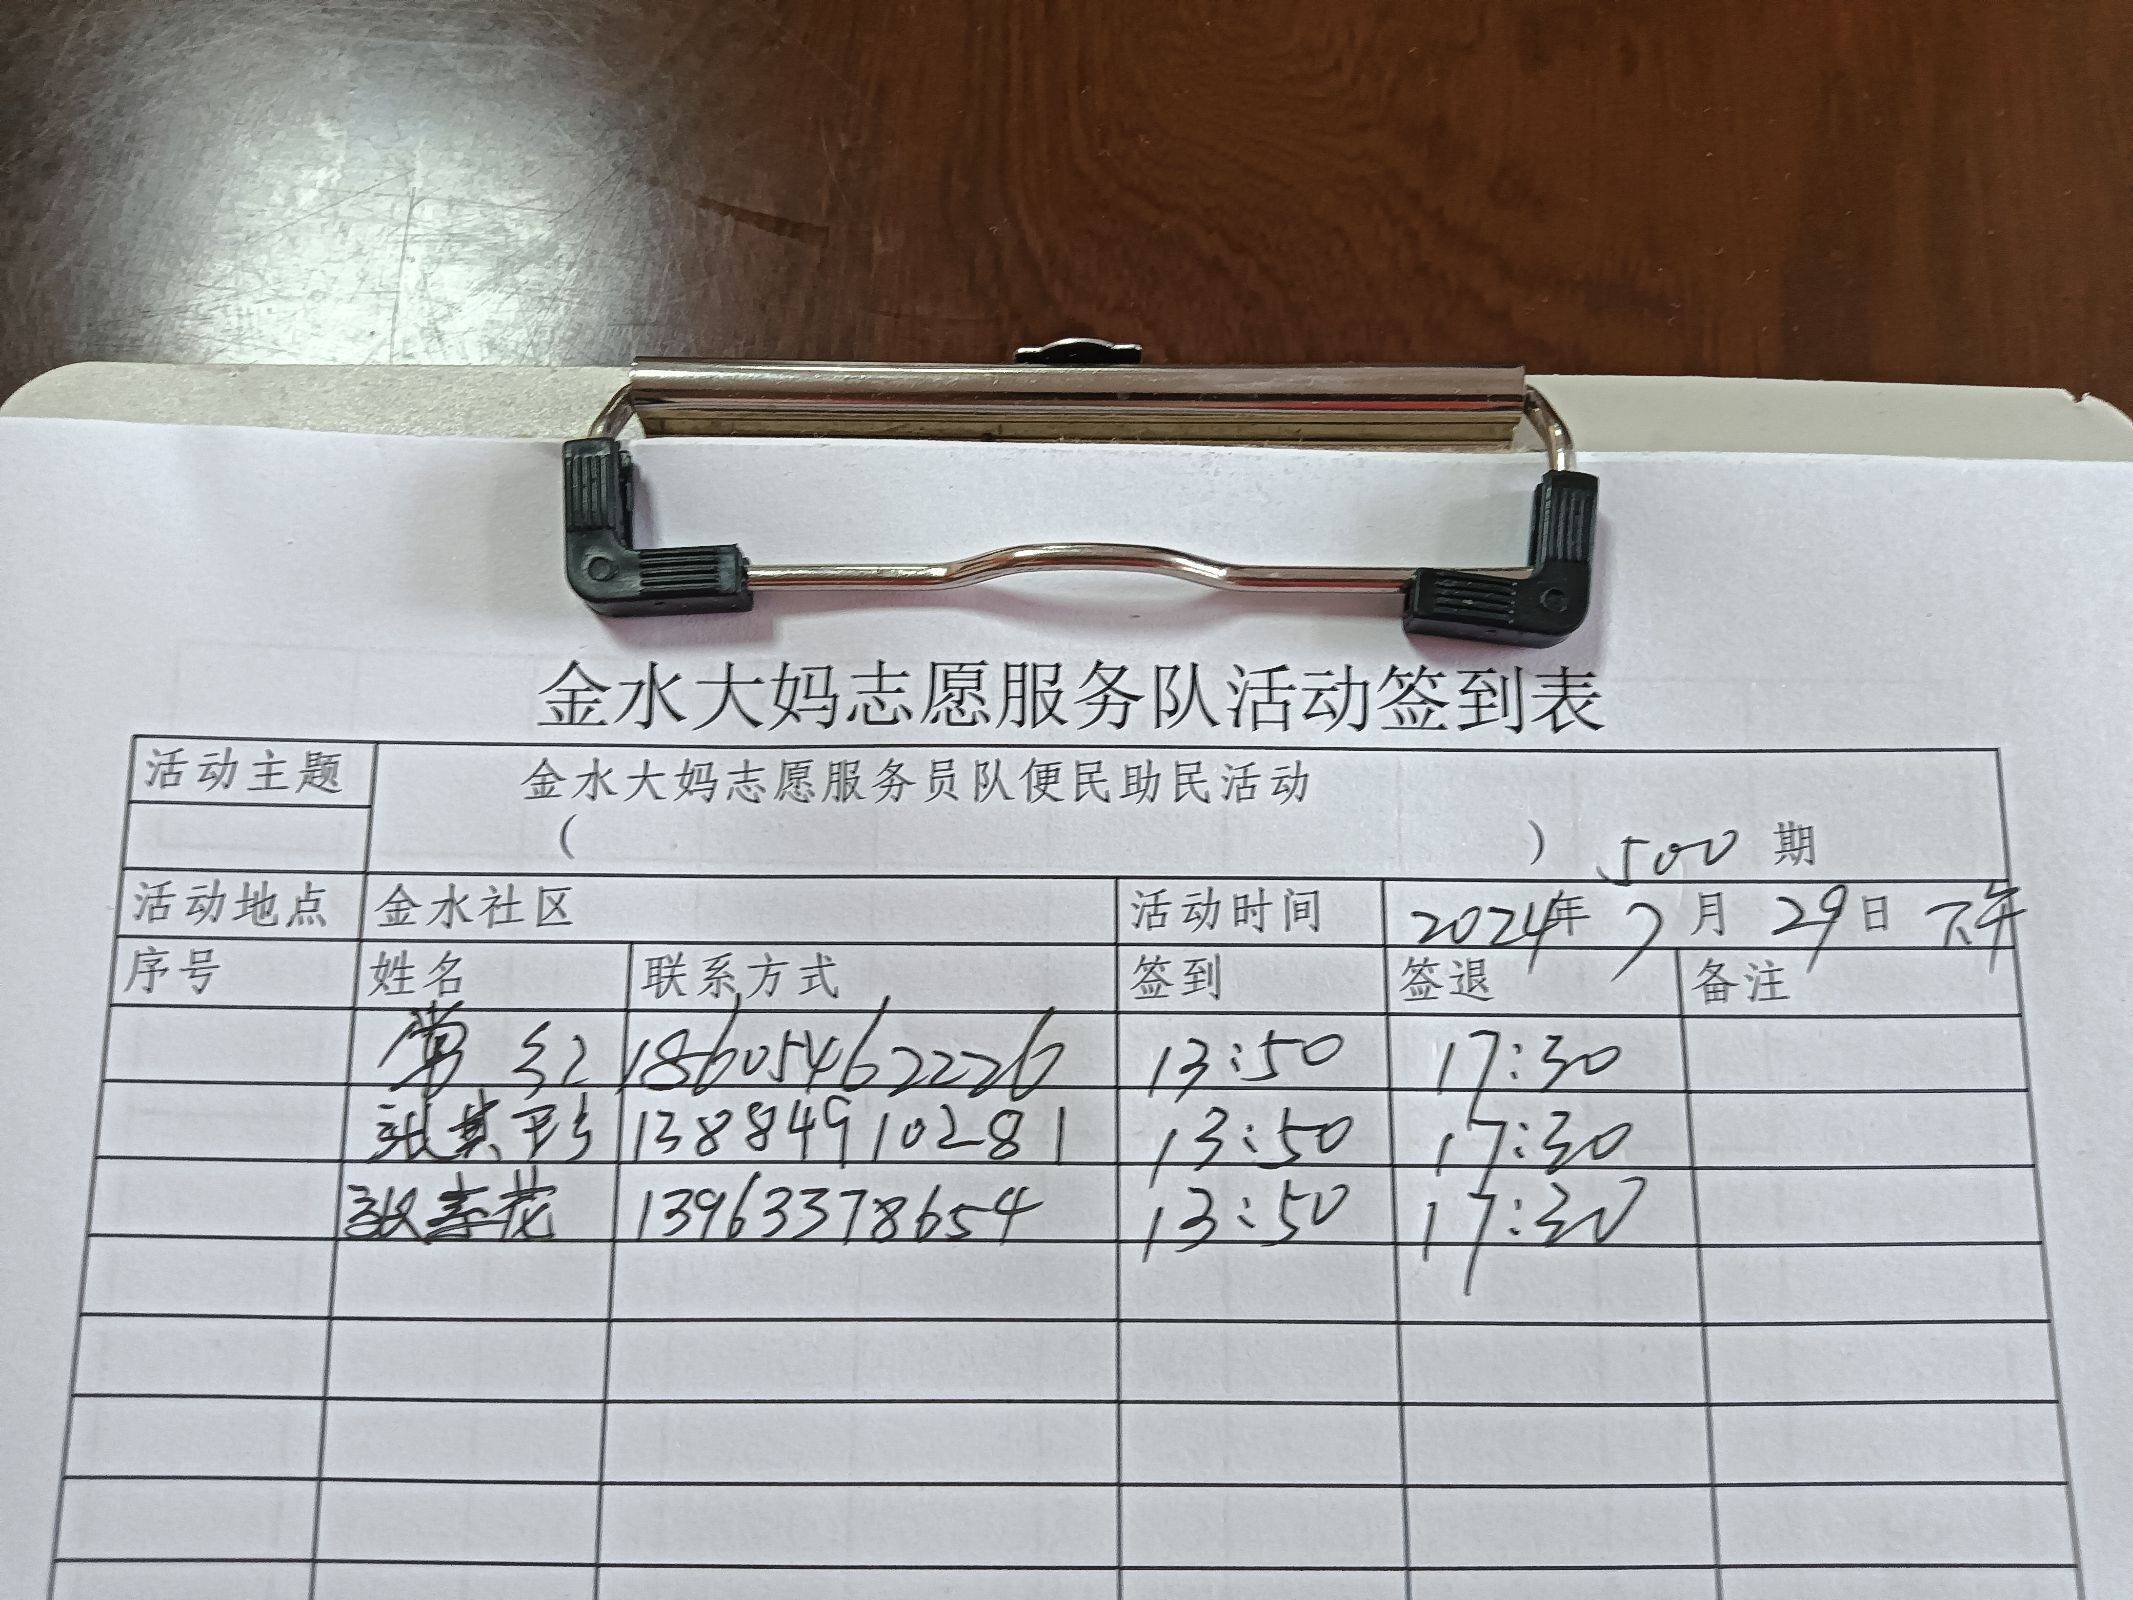 金水大妈志愿服务队活动签到表
活动主题 金水大妈志愿服务员队便民助民活动
( ) 500 期
活动地点 金水社区 活动时间 2024年 7 月 29日 下午
序号 姓名 联系方式 签到 签退 备注
常红 18605462226 13:50 17:30
张其彩 13884910281 13:50 17:30
花 13963378654 13:50 17:30